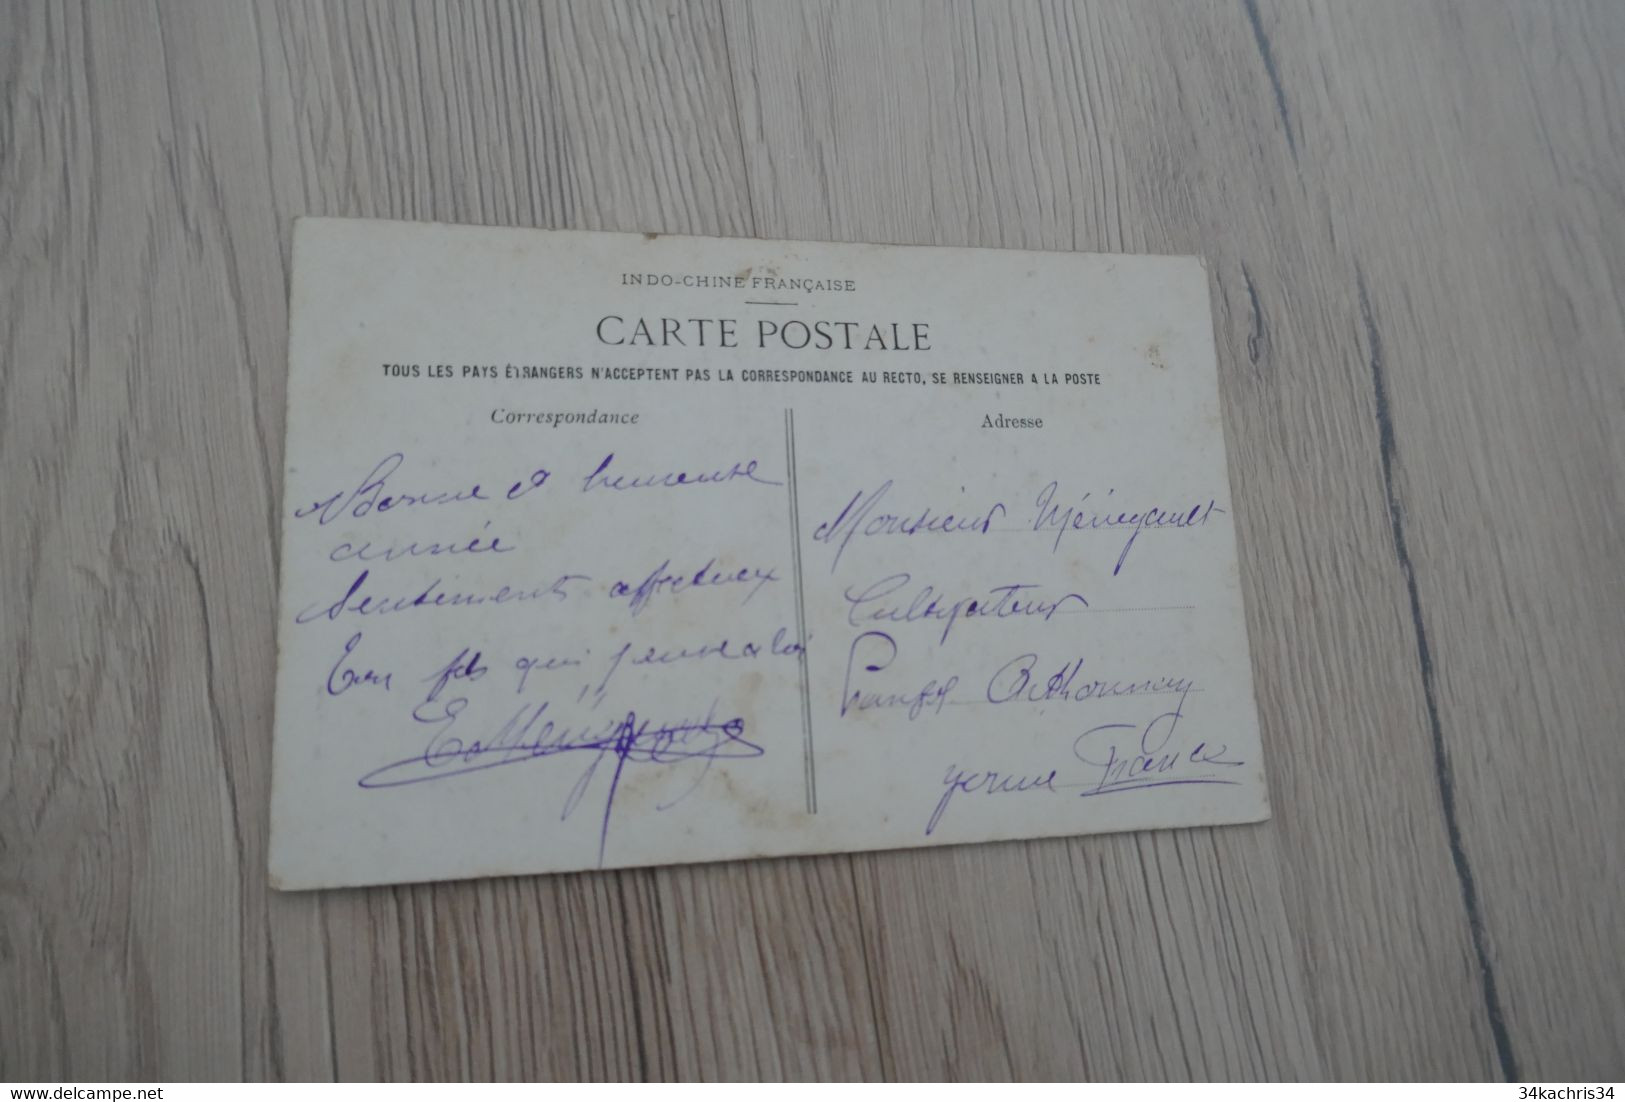 INDO-CHINE FRANÇAISE
CARTE POSTALE
TOUS LES PAYS ÉTRANGERS N'ACCEPTENT PAS LA CORRESPONDANCE AU RECTO, SE RENSEIGNER A LA POSTE
Correspondance
Bonne et heureuse
année
Sentiments affectueux
Ton fils qui pense à toi
E. Ménégault
Adresse
Monsieur Ménégault
Cultivateur
France
delcampe.net
34kachris34